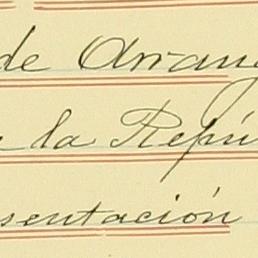 de Arran
la Repú
sentación